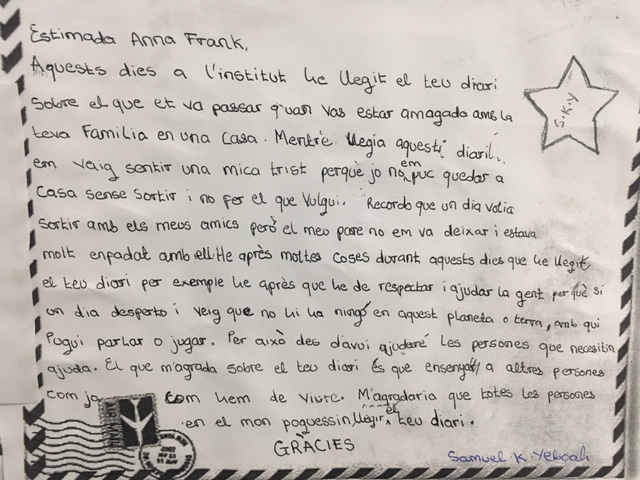 Estimada Anna Frank,
Aquests dies a l'institut he llegit el teu diari
sobre el que et va passar quan vas estar amagada amb la
teva Familia en una casa. Mentre llegia aquest diari
em vaig sentir una mica trist perquè jo no em puc quedar a
casa sense sortir i no fer el que vulgui. Recordo que un dia volia
sortir amb els meus amics però el meu pare no em va deixar i estava
molt enpadat amb ell. He après moltes coses durant aquests dies que he llegit
el teu diari per exemple he après que he de respectar i ajudar la gent perquè si
un dia desperto i veig que no hi ha ningú en aquest planeta o terra, amb qui
Pugui parlar o jugar. Per això des d'avui ajudaré les persones que necesitin
ajuda. El que m'agrada sobre el teu diari És que ensenya a altres persones
com ja com hem de viure. M'agradaria que totes les persones
en el mon poguessin llegir el teu diari.
GRÀCIES
Samuel.K.Yeboah
S.K.Y